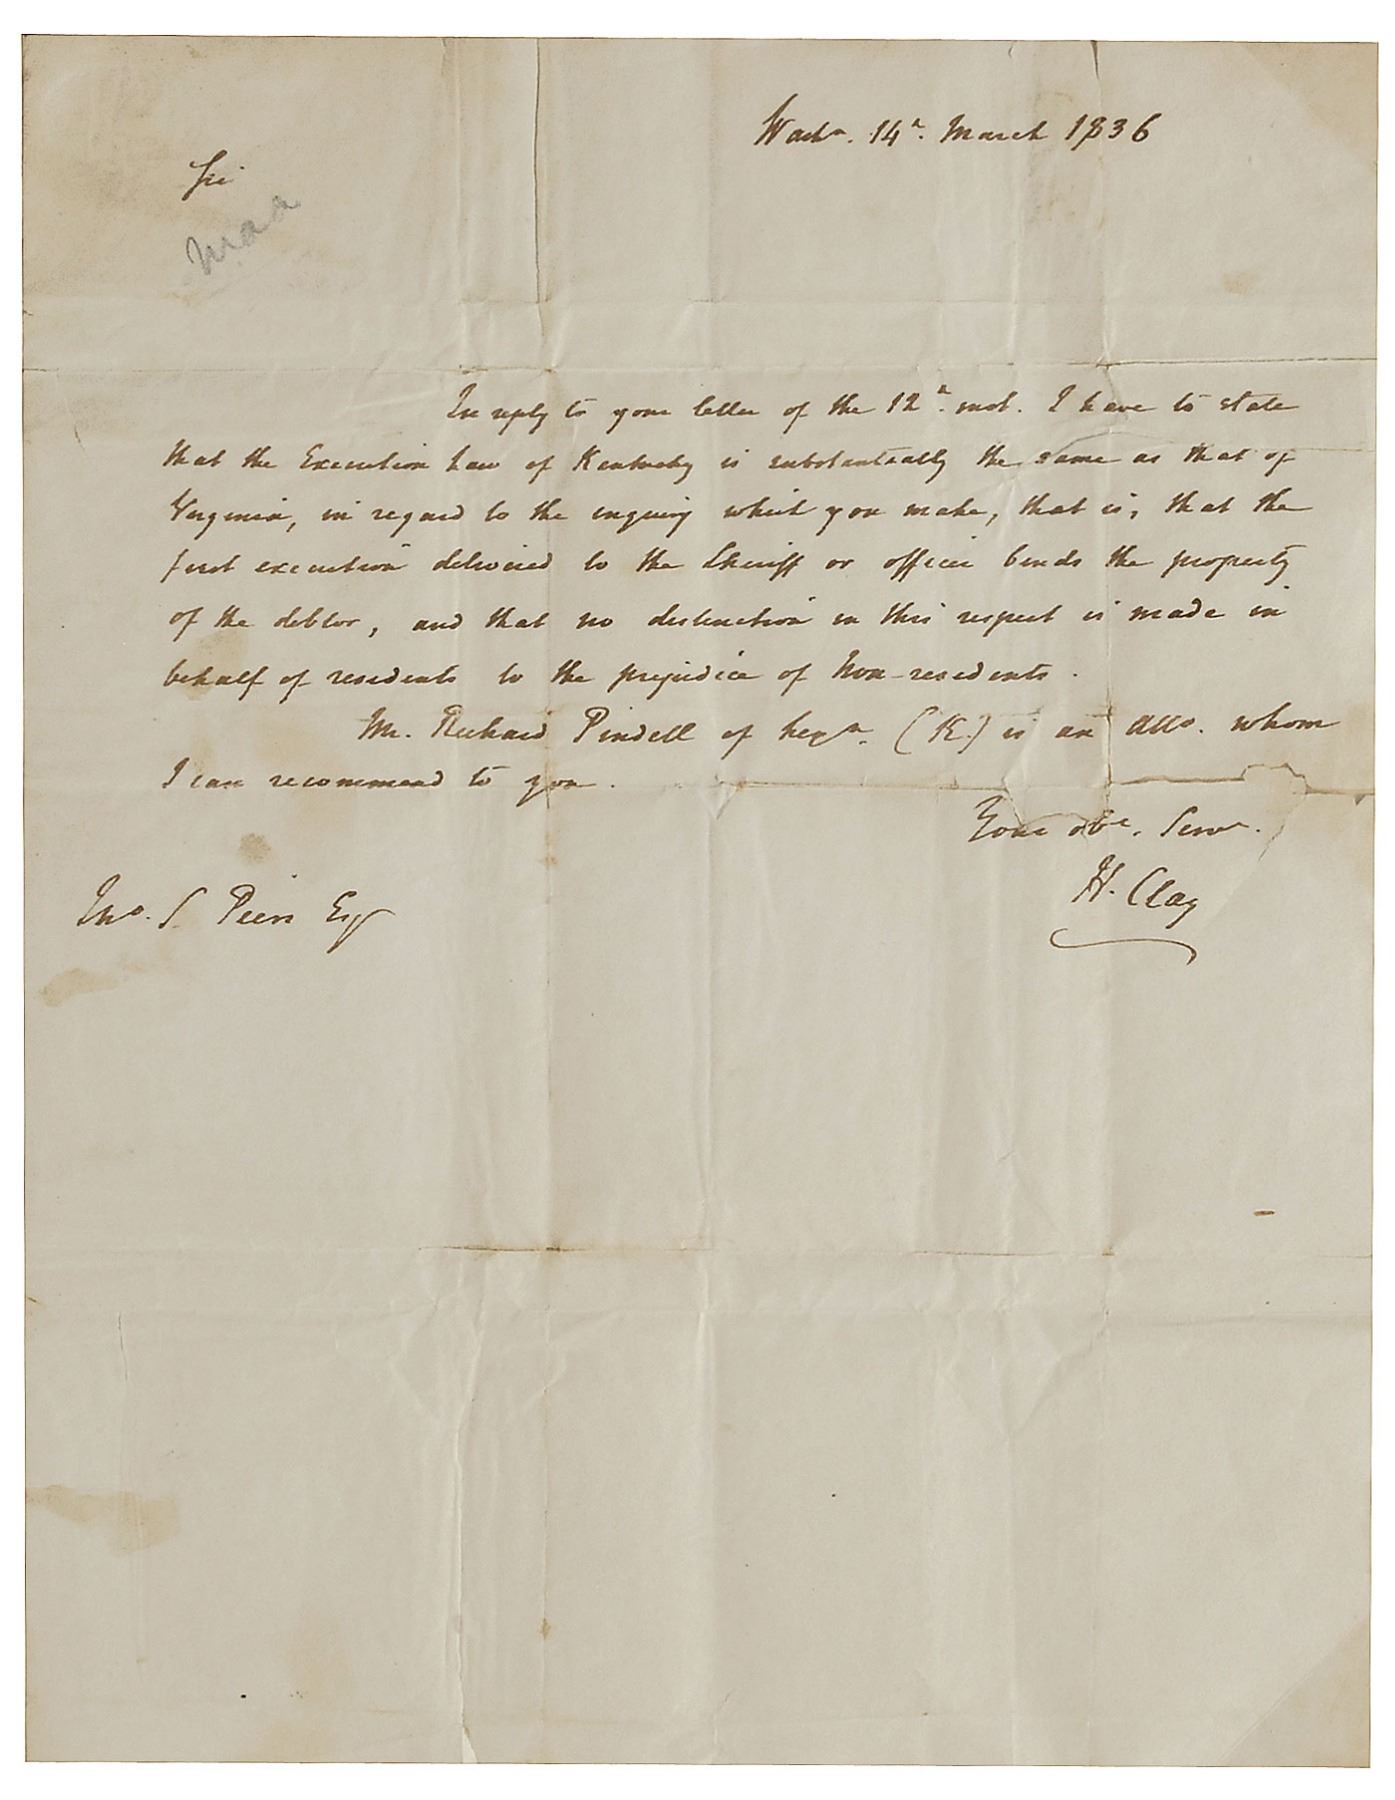 Washn. 14h. March 1836
Sir
In reply to your letter of the 12h. inst. I have to state
that the Execution Law of Kentucky is substantially the same as that of
Virginia, in regard to the inquiry which you make, that is, that the
first execution delivered to the Sheriff or officer binds the property
of the debtor, and that no distinction in this respect is made in
behalf of residents to the prejudice of Non-residents.
Mr. Richard Pindell of Lexn. (K.) is an Atto. whom
I can recommend to you.
Your obt. Servt.
H. Clay
Jno. S Peers Esq